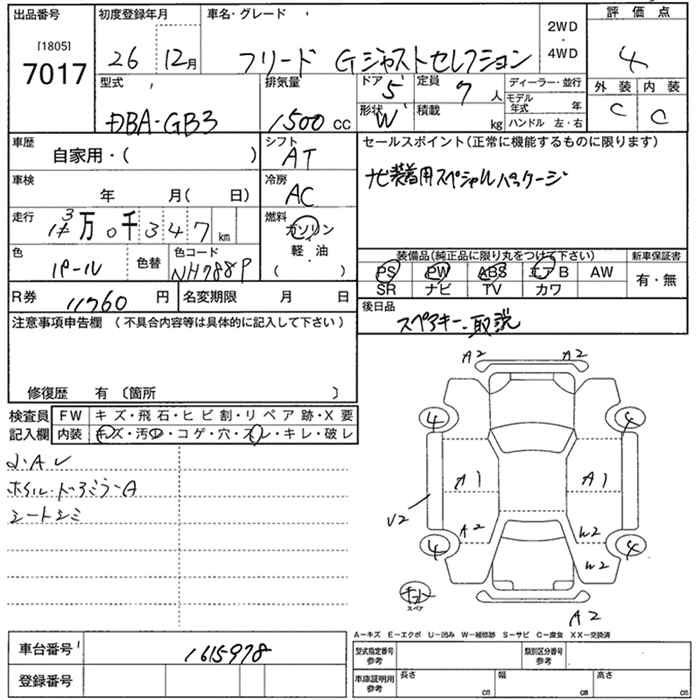 出品番号 初度登録年月 車名・グレード 評価点
[1805]
7017 26 12月 フリード Gジャストセレクション 2WD ・ 4WD 4
型式 排気量 ドア 5 定員 7人 ディーラー・並行 外装 内装
DBA-GB3 1500 CC 形状 W 積載 kg モデル年式 年 C C
ハンドル 左・右
車歴 シフト セールスポイント(正常に機能するものに限ります)
自家用・( ) AT
ナビ装着用スペシャルパッケージ
車検 冷房
年 月( 日) AC
走行 3万0千347km 燃料
ガソリン
軽・油
( )
色 パール 色替 色コード NH788P
装備品(純正品に限り丸をつけて下さい) 新車保証書
PS PW ABS エアB AW 有・無
SR ナビ TV カワ
R券 11760 円 名変期限 月 日 後日品
スペアキー・取説
注意事項申告欄 (不具合内容等は具体的に記入して下さい)
修復歴 有 〔箇所 〕
検査員 FW キズ・飛石・ヒビ割・リペア跡・X要
記入欄 内装 キズ・汚レ・コゲ・穴・スレ・キレ・破レ
ホイル・ドアミラーA
シートシミ
A2 A2
4 4
A1 A1
V2
A2 W2
4 4
W2
スペア
A2
A-キズ E-エクボ U-凹み W-補修跡 S-サビ C-腐食 XX-交換済
車台番号 1615978 型式指定番号 参考 類別区分番号 参考
登録番号 車庫証明用 参考 長さ cm 幅 cm 高さ cm